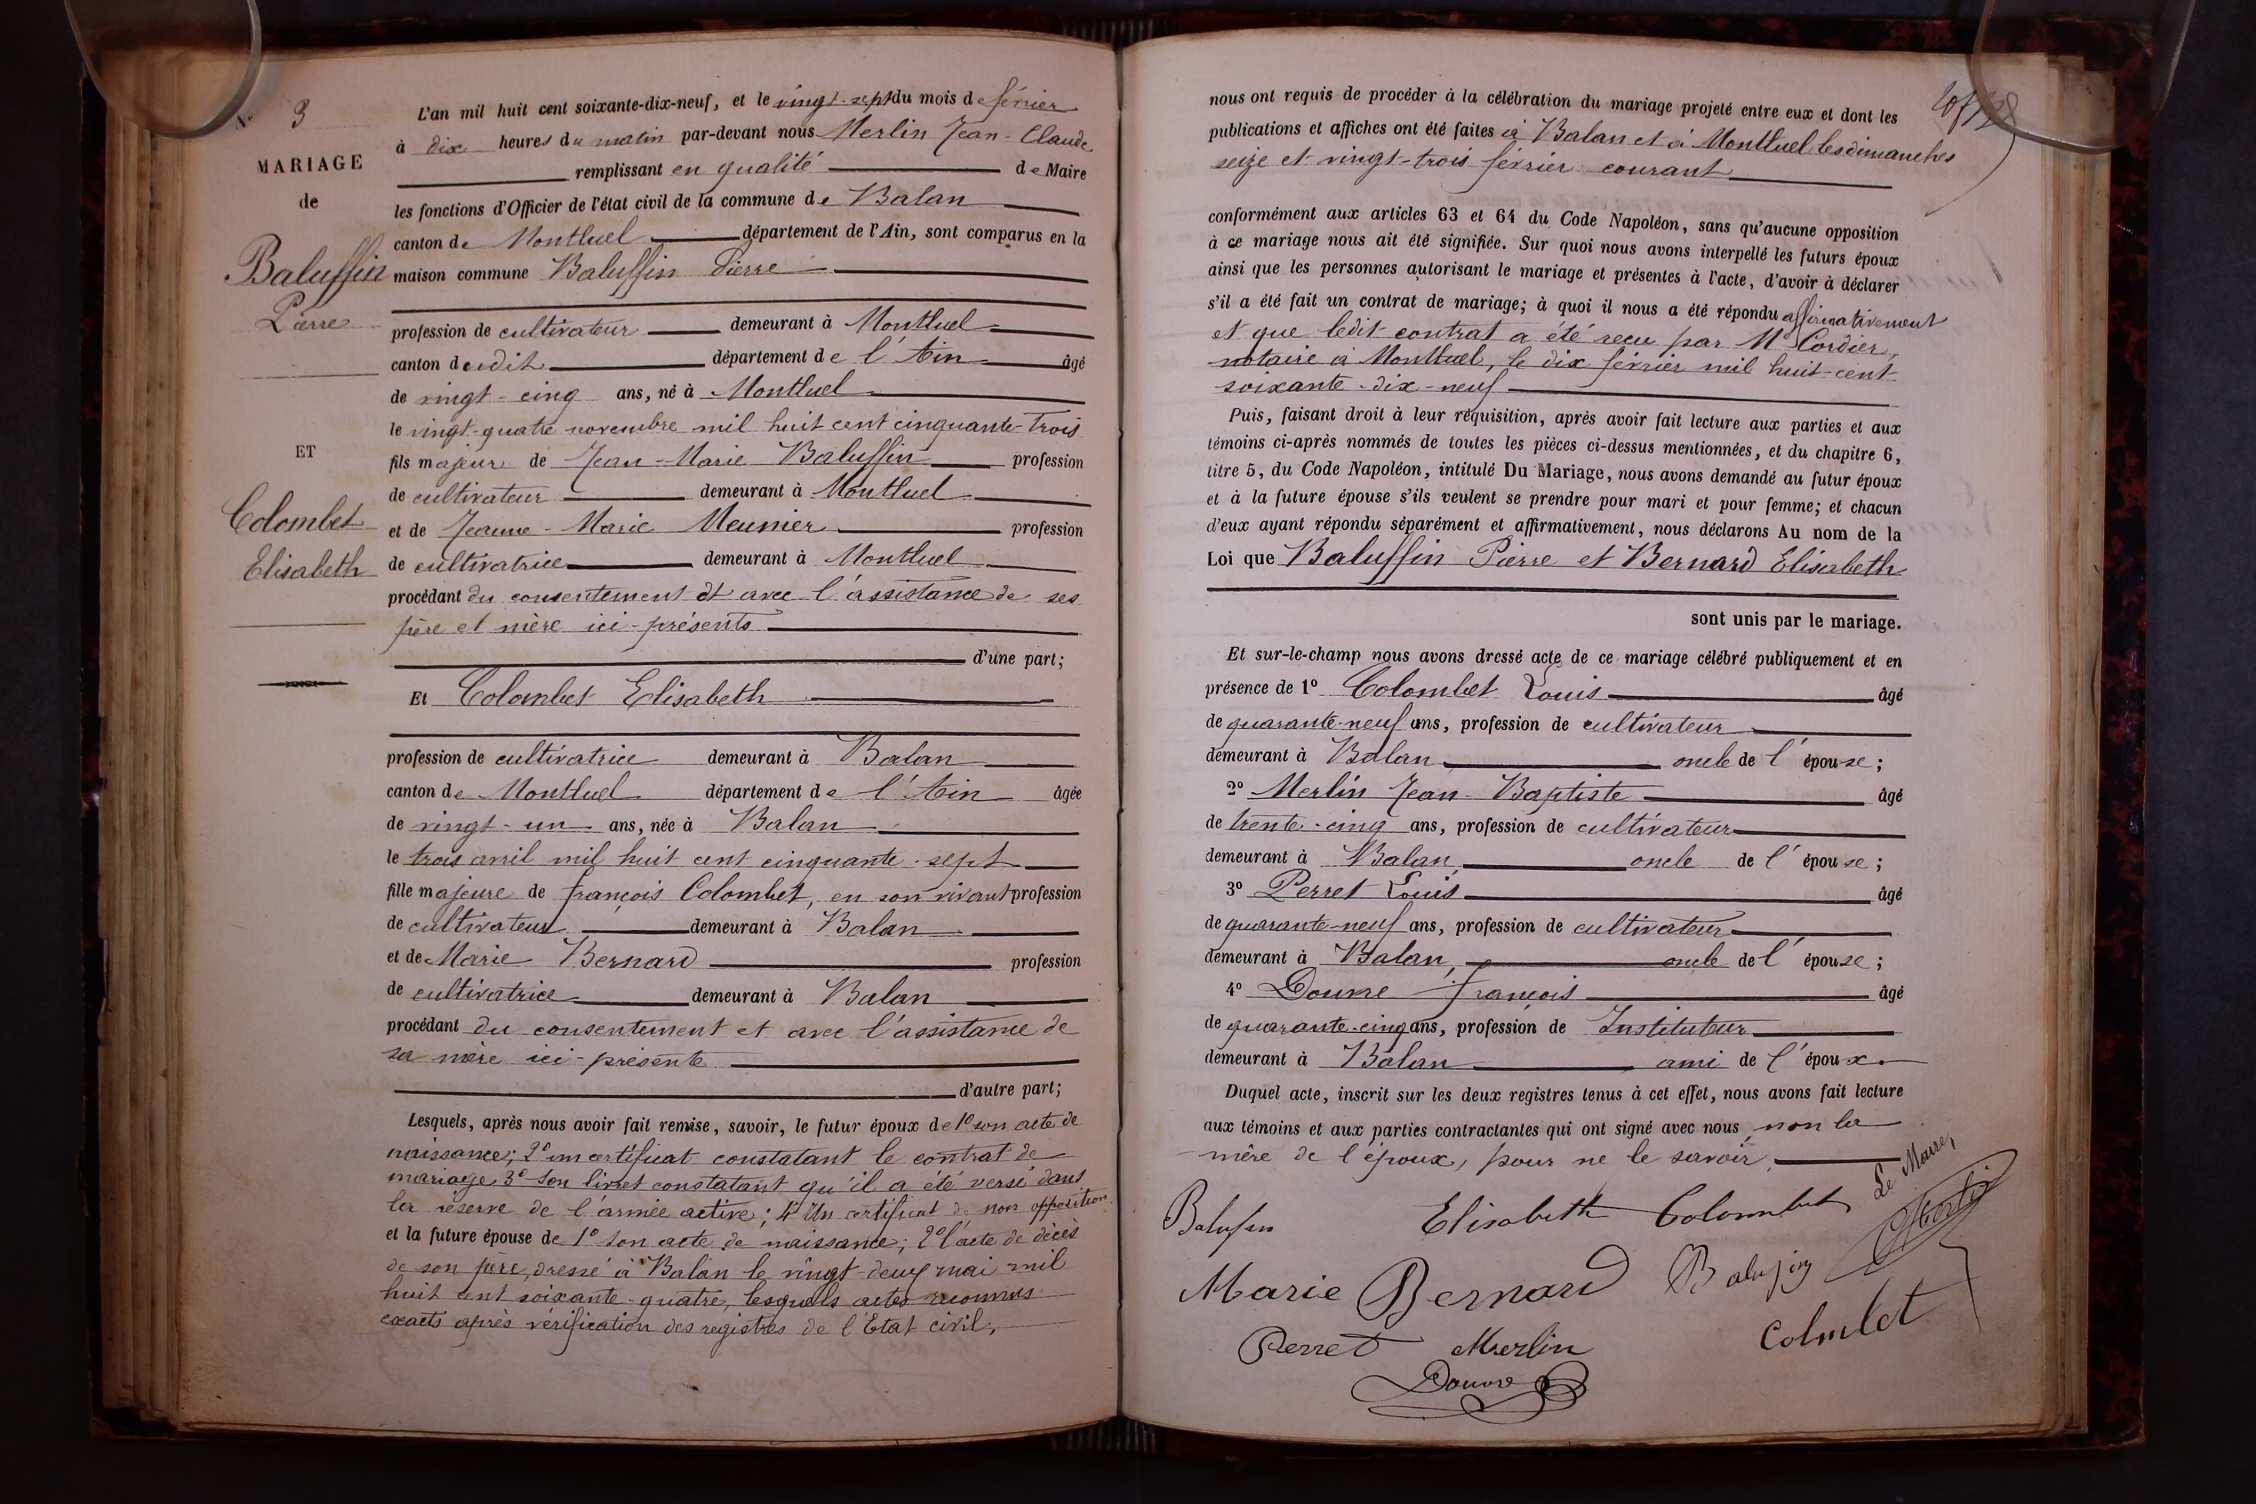 N° 3
MARIAGE
de
Baluffin
Pierre
ET
Colombet
Elisabeth
L'an mil huit cent soixante-dix-neuf, et le vingt-sept du mois de février
à dix heures du matin par-devant nous Merlin Jean-Claude
remplissant en qualité de Maire
les fonctions d'Officier de l'état civil de la commune de Balan
canton de Montluel département de l'Ain, sont comparus en la
maison commune Baluffin Pierre
profession de cultivateur demeurant à Montluel
canton dudit département de l'Ain âgé
de vingt-cinq ans, né à Montluel
le vingt-quatre novembre mil huit cent cinquante-trois
fils majeur de Jean-Marie Baluffin profession
de cultivateur demeurant à Montluel
et de Jeanne-Marie Meunier profession
de cultivatrice demeurant à Montluel
procédant du consentement et avec l'assistance de ses
père et mère ici-présents
d'une part;
Et Colombet Elisabeth
profession de cultivatrice demeurant à Balan
canton de Montluel département de l'Ain âgée
de vingt-un ans, née à Balan
le trois avril mil huit cent cinquante-sept
fille majeure de François Colombet, en son vivant profession
de cultivateur demeurant à Balan
et de Marie Bernard profession
de cultivatrice demeurant à Balan
procédant du consentement et avec l'assistance de
sa mère ici-présente
d'autre part;
Lesquels, après nous avoir fait remise, savoir, le futur époux de 1° son acte de
naissance; 2° un certificat constatant le contrat de
mariage 3° son livret constatant qu'il a été versé dans
la réserve de l'armée active; 4° Un certificat de non opposition
et la future épouse de 1° son acte de naissance; 2° l'acte de décès
de son père, dressé à Balan le vingt-deux mai mil
huit cent soixante-quatre, lesquels actes reconnus
exacts après vérification des registres de l'Etat civil,
nous ont requis de procéder à la célébration du mariage projeté entre eux et dont les
publications et affiches ont été faites à Balan et à Montluel les dimanches
seize et vingt-trois février courant
conformément aux articles 63 et 64 du Code Napoléon, sans qu'aucune opposition
à ce mariage nous ait été signifiée. Sur quoi nous avons interpellé les futurs époux
ainsi que les personnes autorisant le mariage et présentes à l'acte, d'avoir à déclarer
s'il a été fait un contrat de mariage; à quoi il nous a été répondu affirmativement
et que ledit contrat a été reçu par Me Cordier,
notaire à Montluel, le dix février mil huit-cent-
soixante-dix-neuf
Puis, faisant droit à leur réquisition, après avoir fait lecture aux parties et aux
témoins ci-après nommés de toutes les pièces ci-dessus mentionnées, et du chapitre 6,
titre 5, du Code Napoléon, intitulé Du Mariage, nous avons demandé au futur époux
et à la future épouse s'ils veulent se prendre pour mari et pour femme; et chacun
d'eux ayant répondu séparément et affirmativement, nous déclarons Au nom de la
Loi que Baluffin Pierre et Bernard Elisabeth
sont unis par le mariage.
Et sur-le-champ nous avons dressé acte de ce mariage célébré publiquement et en
présence de 1° Colombet Louis âgé
de quarante-neuf ans, profession de cultivateur
demeurant à Balan oncle de l'épouse;
2° Merlin Jean-Baptiste âgé
de trente-cinq ans, profession de cultivateur
demeurant à Balan, oncle de l'épouse;
3° Perret Louis âgé
de quarante-neuf ans, profession de cultivateur
demeurant à Balan, oncle de l'épouse;
4° Douvre François âgé
de quarante-cinq ans, profession de Instituteur
demeurant à Balan ami de l'époux.
Duquel acte, inscrit sur les deux registres tenus à cet effet, nous avons fait lecture
aux témoins et aux parties contractantes qui ont signé avec nous, non la
mère de l'époux, pour ne le savoir.
Le Maire,
Balufin Elisabeth Colombet
Merlin
Marie Bernard Balufin
Perret Merlin Colmbet
Douvre